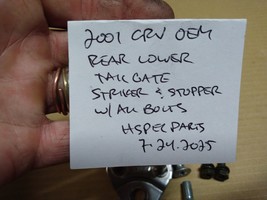 2001 CRV OEM
REAR LOWER
TAILGATE
STRIKER & STOPPER
W/ALL BOLTS
HSPECPARTS
7-24-2025